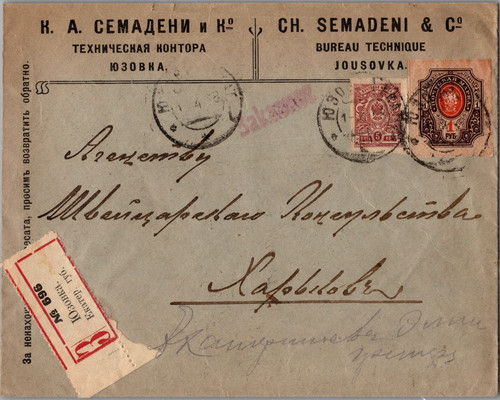 К. А. СЕМАДЕНИ и Ко
ТЕХНИЧЕСКАЯ КОНТОРА
ЮЗОВКА.
CH. SEMADENI & Co
BUREAU TECHNIQUE
JOUSOVKA.
Заказное
5
1
РУБ
Агентству
Швейцарскаго Консульства
Харьковъ
За ненахож
есата, просимъ возвратить обратно.
З
Юзовка.
Екатер. губ.
№ 696